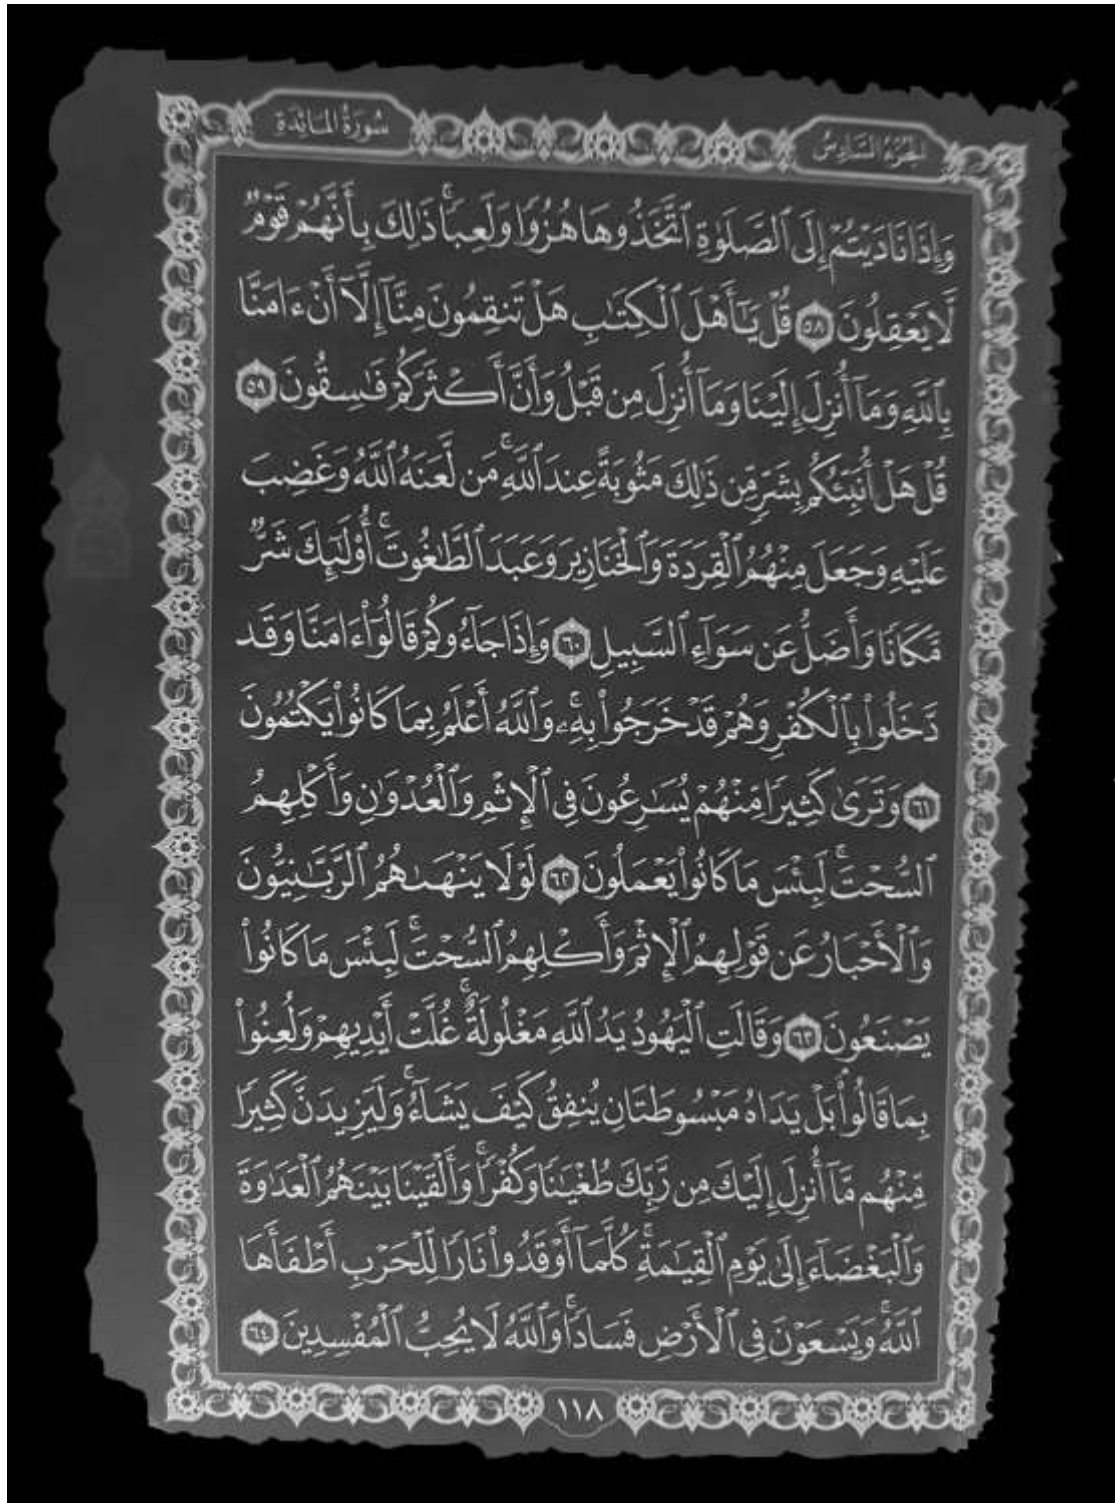 الجزء السادس
سورة المائدة
وَإِذَا نَادَيْتُمْ إِلَى ٱلصَّلَوٰةِ ٱتَّخَذُوهَا هُزُوًا وَلَعِبًا ۚ ذَٰلِكَ بِأَنَّهُمْ قَوْمٌ
لَّا يَعْقِلُونَ ٥٨ قُلْ يَـٰٓأَهْلَ ٱلْكِتَـٰبِ هَلْ تَنقِمُونَ مِنَّآ إِلَّآ أَنْ ءَامَنَّا
بِٱللَّهِ وَمَآ أُنزِلَ إِلَيْنَا وَمَآ أُنزِلَ مِن قَبْلُ وَأَنَّ أَكْثَرَكُمْ فَـٰسِقُونَ ٥٩
قُلْ هَلْ أُنَبِّئُكُم بِشَرٍّ مِّن ذَٰلِكَ مَثُوبَةً عِندَ ٱللَّهِ ۚ مَن لَّعَنَهُ ٱللَّهُ وَغَضِبَ
عَلَيْهِ وَجَعَلَ مِنْهُمُ ٱلْقِرَدَةَ وَٱلْخَنَازِيرَ وَعَبَدَ ٱلطَّـٰغُوتَ ۚ أُو۟لَـٰٓئِكَ شَرٌّ
مَّكَانًا وَأَضَلُّ عَن سَوَآءِ ٱلسَّبِيلِ ٦٠ وَإِذَا جَآءُوكُمْ قَالُوٓا۟ ءَامَنَّا وَقَد
دَّخَلُوا۟ بِٱلْكُفْرِ وَهُمْ قَدْ خَرَجُوا۟ بِهِۦ ۚ وَٱللَّهُ أَعْلَمُ بِمَا كَانُوا۟ يَكْتُمُونَ
٦١ وَتَرَىٰ كَثِيرًا مِّنْهُمْ يُسَـٰرِعُونَ فِى ٱلْإِثْمِ وَٱلْعُدْوَٰنِ وَأَكْلِهِمُ
ٱلسُّحْتَ ۚ لَبِئْسَ مَا كَانُوا۟ يَعْمَلُونَ ٦٢ لَوْلَا يَنْهَىٰهُمُ ٱلرَّبَّـٰنِيُّونَ
وَٱلْأَحْبَارُ عَن قَوْلِهِمُ ٱلْإِثْمَ وَأَكْلِهِمُ ٱلسُّحْتَ ۚ لَبِئْسَ مَا كَانُوا۟
يَصْنَعُونَ ٦٣ وَقَالَتِ ٱلْيَهُودُ يَدُ ٱللَّهِ مَغْلُولَةٌ ۚ غُلَّتْ أَيْدِيهِمْ وَلُعِنُوا۟
بِمَا قَالُوا۟ ۘ بَلْ يَدَاهُ مَبْسُوطَتَانِ يُنفِقُ كَيْفَ يَشَآءُ ۚ وَلَيَزِيدَنَّ كَثِيرًا
مِّنْهُم مَّآ أُنزِلَ إِلَيْكَ مِن رَّبِّكَ طُغْيَـٰنًا وَكُفْرًا ۚ وَأَلْقَيْنَا بَيْنَهُمُ ٱلْعَدَٰوَةَ
وَٱلْبَغْضَآءَ إِلَىٰ يَوْمِ ٱلْقِيَـٰمَةِ ۚ كُلَّمَآ أَوْقَدُوا۟ نَارًا لِّلْحَرْبِ أَطْفَأَهَا
ٱللَّهُ ۚ وَيَسْعَوْنَ فِى ٱلْأَرْضِ فَسَادًا ۚ وَٱللَّهُ لَا يُحِبُّ ٱلْمُفْسِدِينَ ٦٤
١١٨